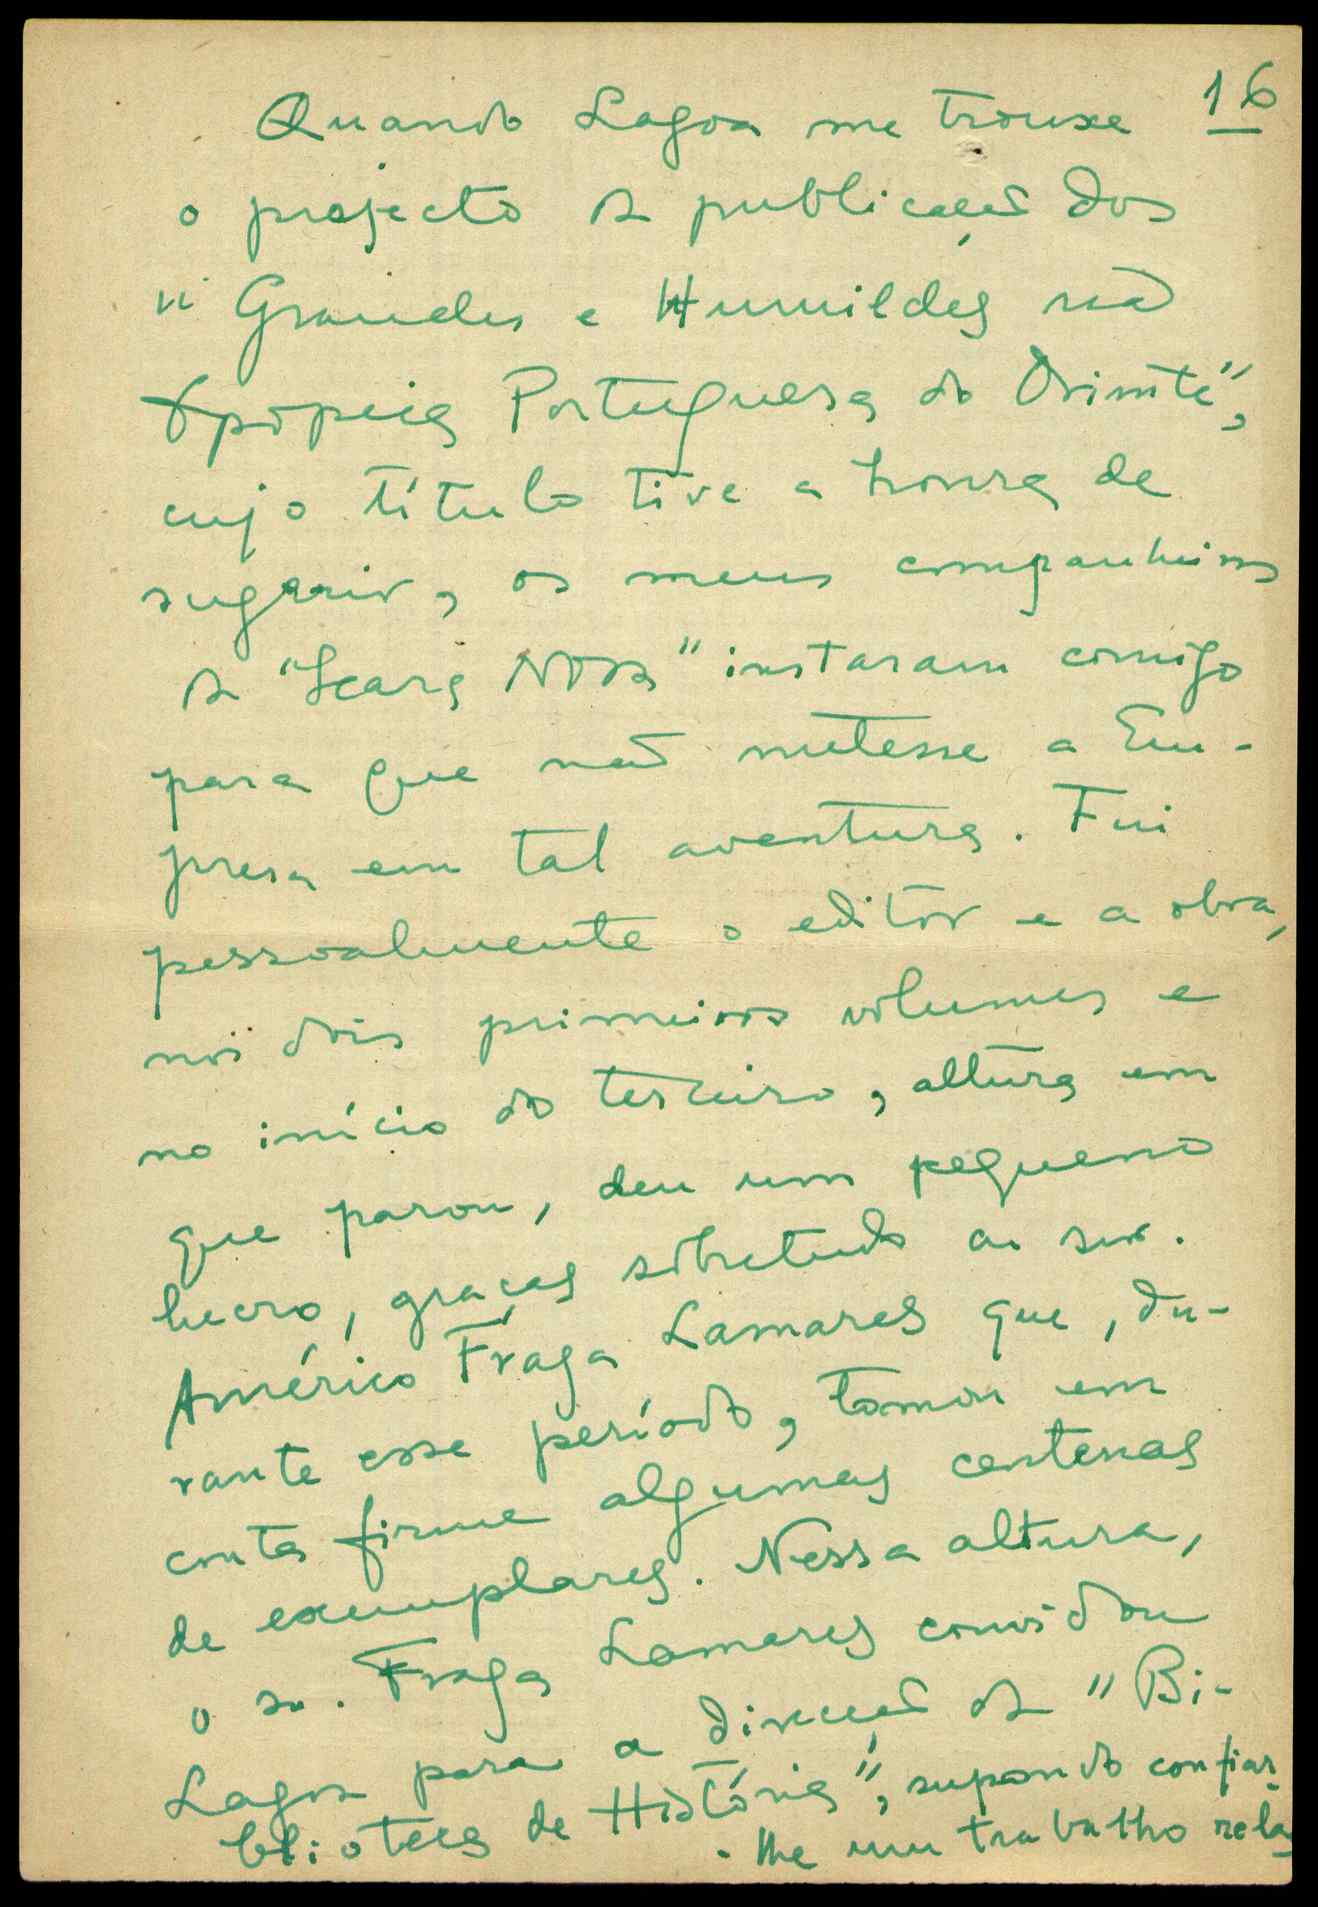 16
Quando Lagoa me trouxe
o projecto da publicação dos
"Grandes e Humildes na
Epopeia Portuguesa do Oriente",
cujo título tive a honra de
sugerir, os meus companheiros
da "Seara Nova" instaram comigo
para que não metesse a Em-
presa em tal aventura. Fui
pessoalmente o editor e a obra,
nos dois primeiros volumes e
no início do terceiro, altura em
que parou, deu um pequeno
lucro, graças sobretudo ao snr.
Américo Fraga Lamares que, du-
rante esse período, tomou em
conta firme algumas centenas
de exemplares. Nessa altura,
o sr. Fraga Lamares convidou
Lagoa para a direcção da "Bi-
blioteca de História", supondo confiar-
-lhe um trabalho rela-